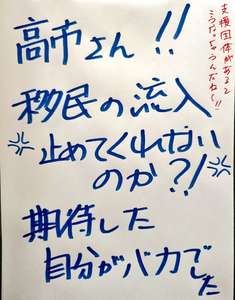 高市さん!!
移民の流入
止めてくれない
のか?!
期待した
自分がバカでした
支援団体があると
こうなっちゃうんだね〜!!